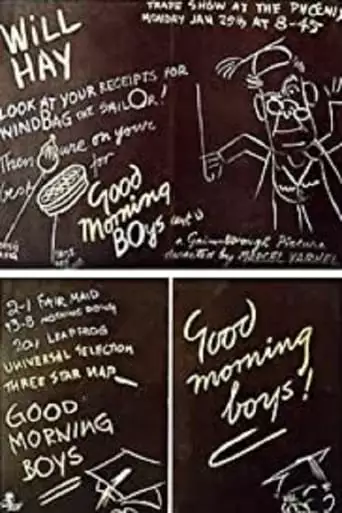 TRADE SHOW AT THE PHOENIX
MONDAY JAN 25th AT 8-45
WILL
HAY
LOOK AT YOUR RECEIPTS FOR
WINDBAG THE SAILOR!
Then on your
for
Good
Morning
BOYS
a Gainsborough Picture
directed by MARCEL VARNEL
2-1 FAIR MAID
13-8 NOTHING DOING
20/1 LEAPFROG
UNIVERSAL SELECTION
THREE STAR NAP
GOOD
MORNING
BOYS
Good
morning
boys!